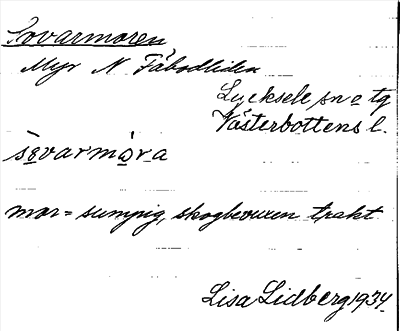 Sovarmoren
Myr N. Fäbodliden
Lycksele sn o tg
Västerbottens l.
sovarmòra
mor = sumpig, skogbevuxen trakt
Lisa Lidberg 1934